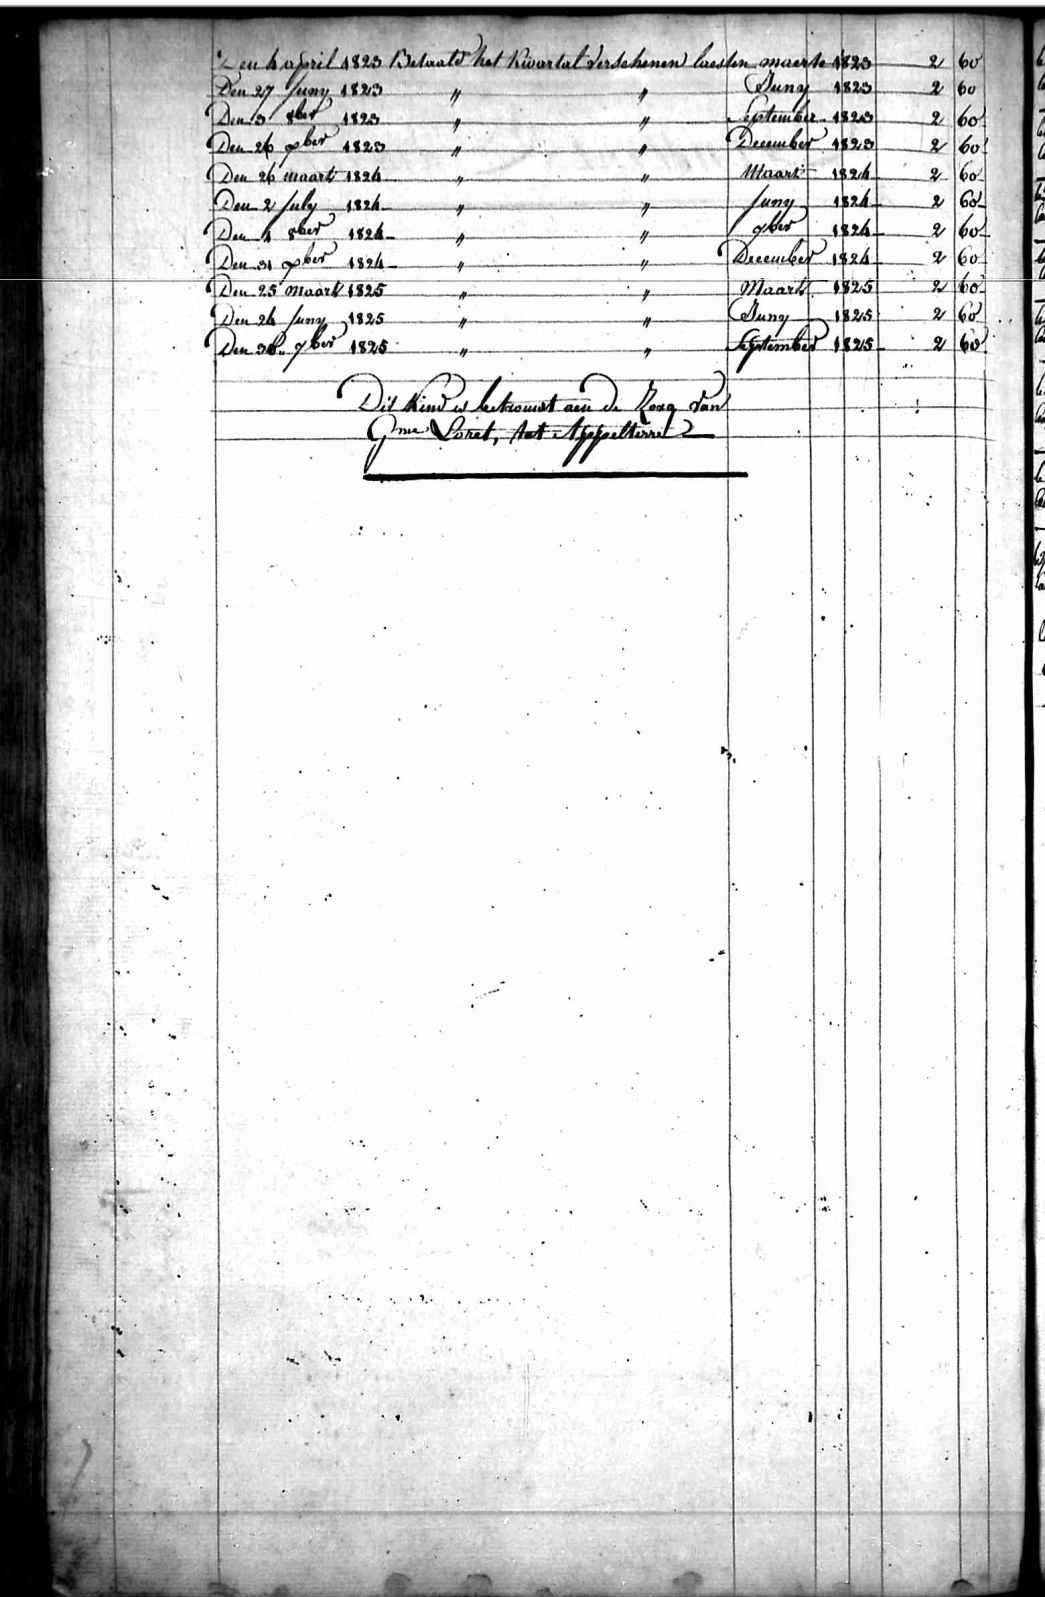 Den 4 april 1823 Betaald het Kwartal verschenen laesten maerte 1823 2 60
Den 27 Juny 1823 " " Juny 1823 2 60
Den 3 8ber 1823 " " September 1823 2 60
Den 26 xber 1823 " " December 1823 2 60
Den 26 maart 1824 " " Maart 1824 2 60
Den 2 July 1824 " " Juny 1824 2 60
Den 1 8ber 1824 " " 7ber 1824 2 60
Den 31 xber 1824 " " December 1824 2 60
Den 25 maart 1825 " " Maart 1825 2 60
Den 24 Juny 1825 " " Juny 1825 2 60
Den 30 7ber 1825 " " September 1825 2 60
Dit Kind is betrouwt aen de Zorg van
Gme Loret, tot Appelterre